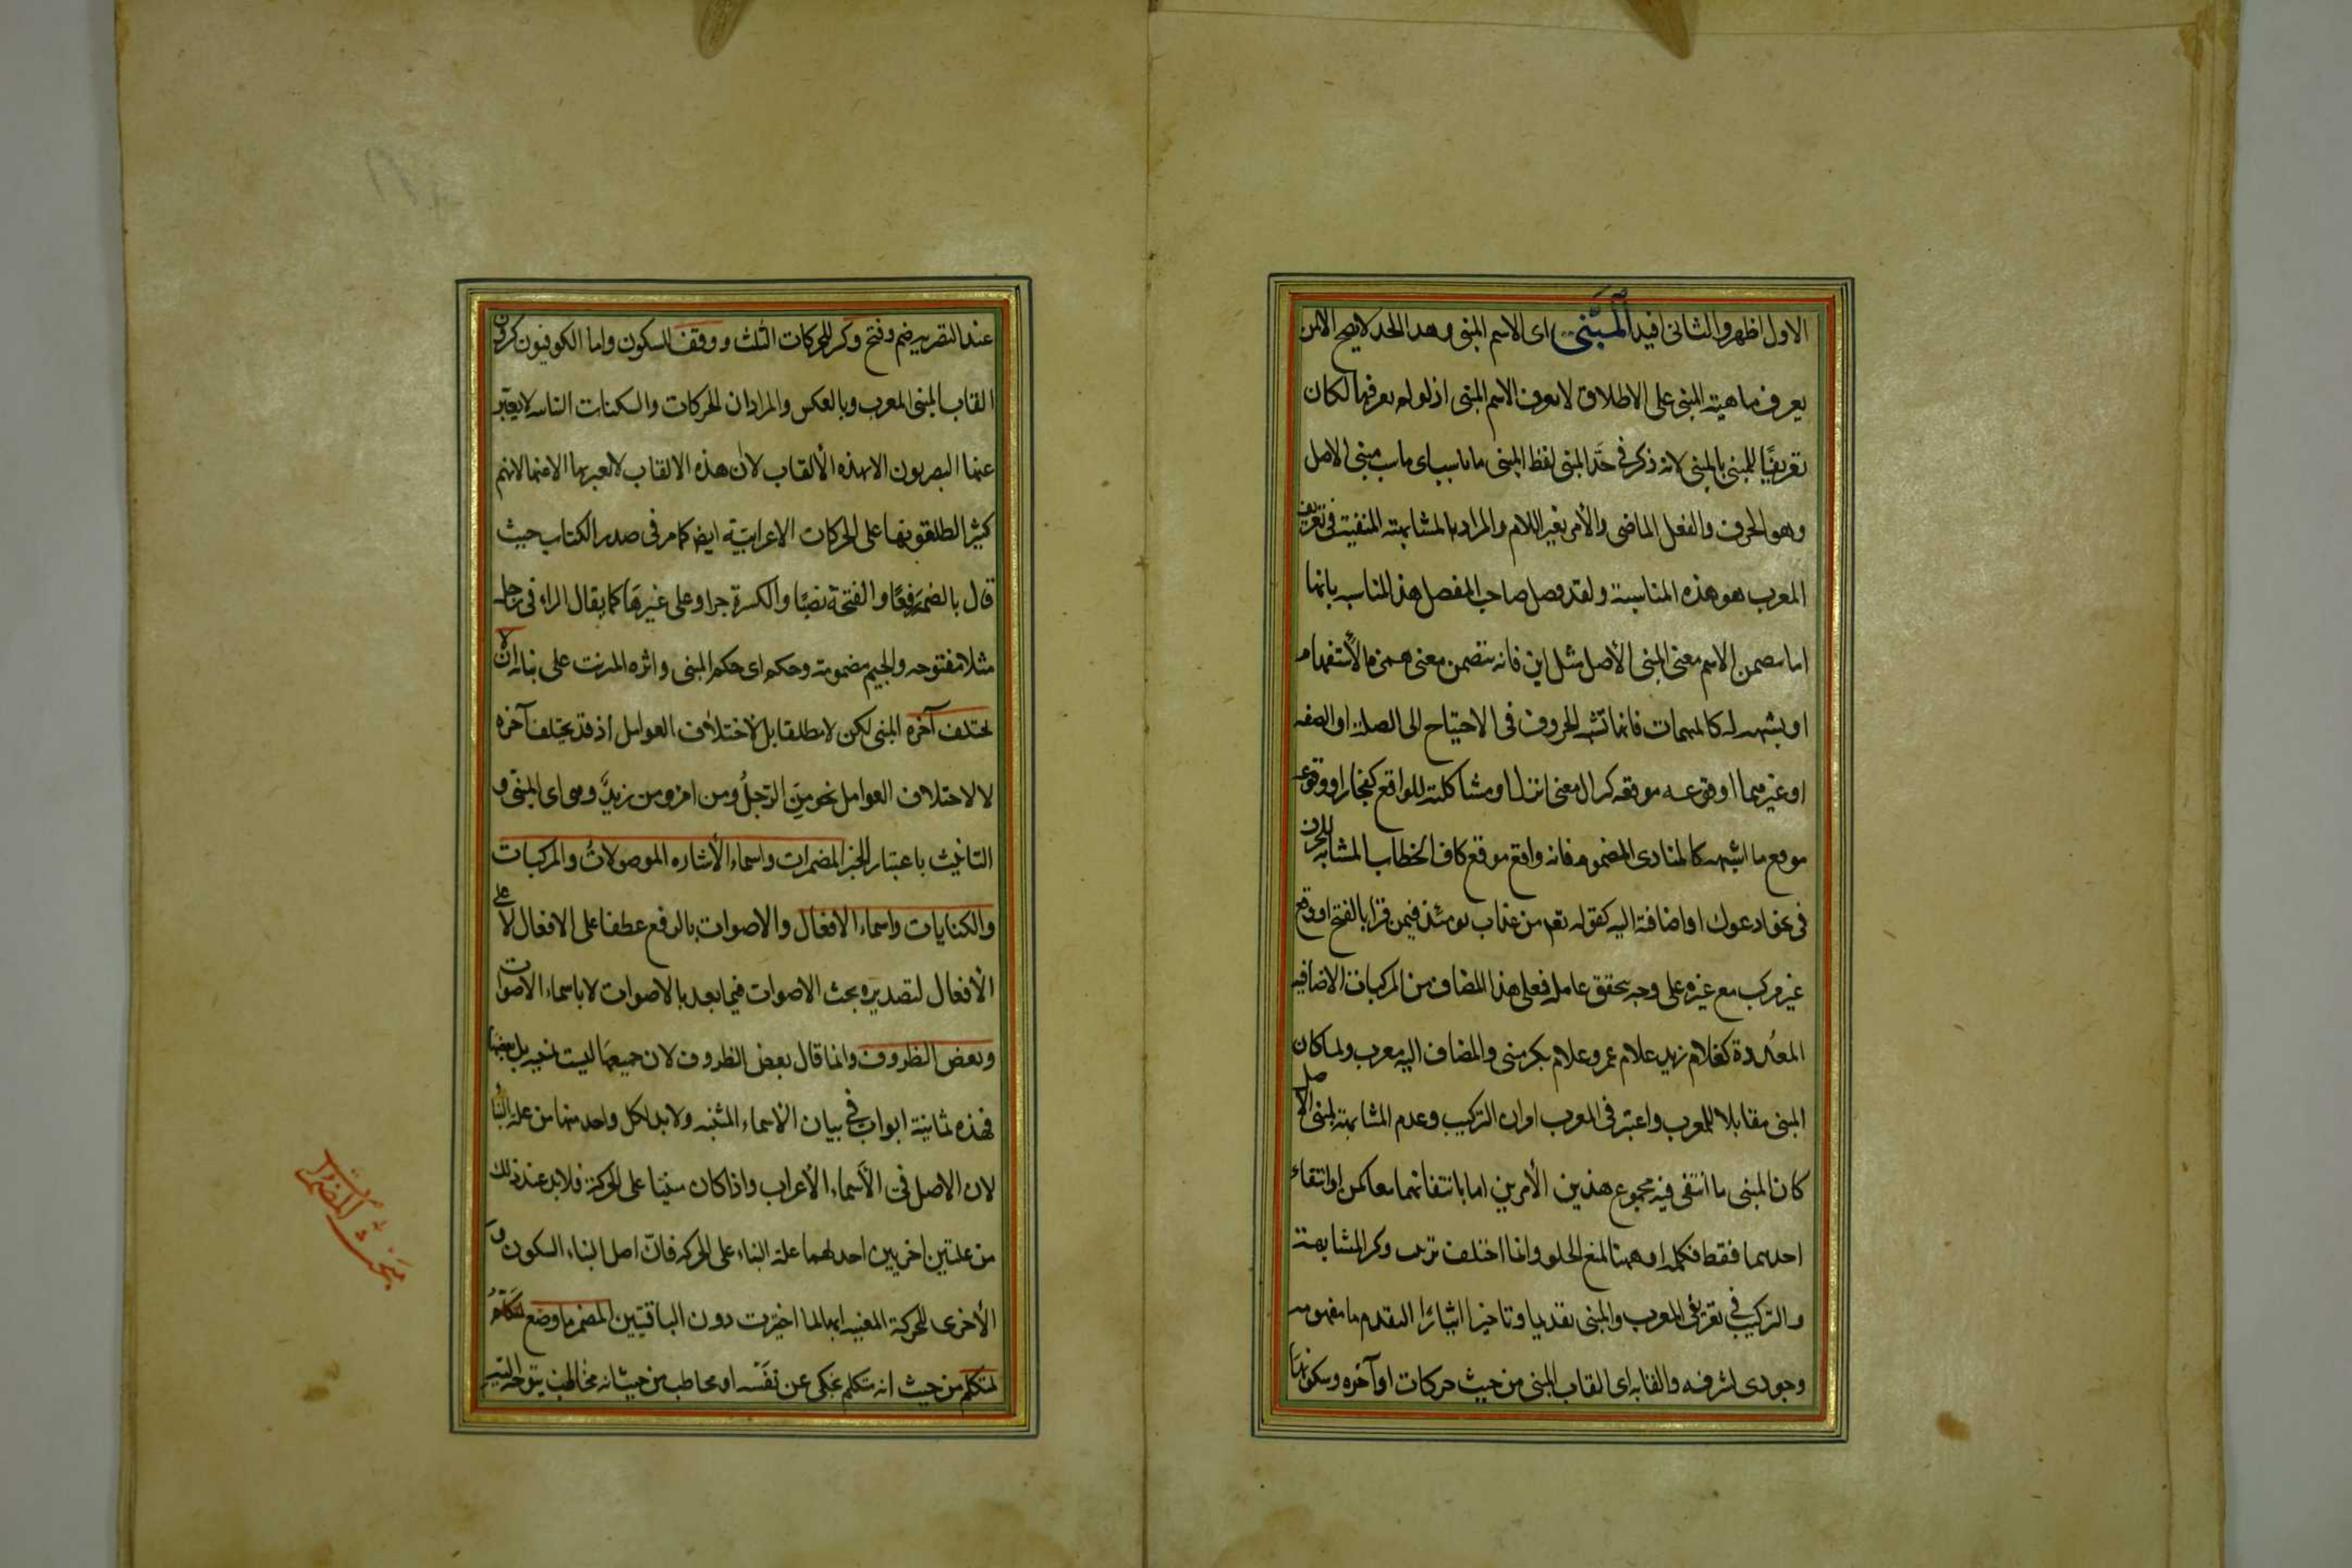 الاول اظهر والثانى افيد المبنى اى الاسم المبنى وهذا الحد لا يصح الا لمن
يعرف ماهية المبنى على الاطلاق لا يعرف الاسم المبنى اذ لو لم يعرفها لكان
تعريفا للمبنى بالمبنى لانه ذكر فى حد المبنى لفظ المبنى ما ناسب اى ماسب مبنى الاصل
وهو الحرف والفعل الماضى والأمر بغير اللام والمراد بالمشابهة المنفية فى تعريف
المعرب هو هذه المناسبة ولقد فصل صاحب المفصل هذه المناسبة بانها
اما بتضمن الاسم معنى المبنى الأصل مثل اين فانه يتضمن معنى همزة الأستفهام
او بشبهه له كالمبهمات فانها تشبه الحروف فى الاحتياج الى الصلة او الصفه
او غيرهما او وقوعه موقعه كنزال بمعنى انزل او مشاكلته للواقع كفجار او وقوعه
موقع ما اشبهه كالمنادى المضموم فانه واقع موقع كاف الخطاب المشابه للحرف
فى نحو ادعوك او اضافته اليه كقوله تعم من عذاب يومئذ فيمن قرا بالفتح او وقع
غير مركب مع غيره على وجه يتحقق عامله فعلى هذا المضاف من المركبات الاضافية
المعدودة كغلام زيد غلام عمرو غلام بكر مبنى والمضاف اليه معرب ولما كان
المبنى مقابلا للمعرب واعتبر فى المعرب امران التركيب وعدم المشابهة لمبنى الاصل
كان المبنى ما انتفى فيه مجموع هذين الأمرين اما بانتفائهما معا كمن او انتفاء
احدهما فقط فكلمة او ههنا لمنع الخلو وانما اختلف ترتيب ذكر المشابهة
والتركيب فى تعريفى المعرب والمبنى تقديما وتاخيرا ايثارا لتقدم ما مفهومه
وجودى لشرفه والقابه اى القاب المبنى من حيث حركات اواخره وسكونها
عند البصريين ضم وفتح وكسر للحركات الثلث ووقف للسكون واما الكوفيون فيذكرون
القاب المبنى المعرب وبالعكس والمراد ان الحركات والسكنات البنائيه لا يعبر
عنها البصريون الا بهذه الألقاب لان هذه الالقاب لا يعبر بها الا عنها لانهم
كثيرا يطلقونها على الحركات الاعرابية ايضا كما مر فى صدر الكتاب حيث
قال بالضمة رفعا والفتحة نصبا والكسرة جرا وعلى غيرها كما يقال الراء فى رجل
مثلا مفتوحه والجيم مضمومة وحكمه اى حكم المبنى واثره المترتب على بنائه ان لا
يختلف آخره المبنى لكن لا مطلقا بل لاختلاف العوامل اذ قد يختلف آخره
لا لاختلاف العوامل نحو من الرجل ومن امرؤ ومن زيد وهى اى المبنى و
التانيث باعتبار الخبر المضمرات واسماء الأشاره الموصولات والمركبات
والكنايات واسماء الافعال والاصوات بالرفع عطفا على الافعال لا على
الأفعال لتصديره بحث الاصوات فيما بعد بالاصوات لا باسماء الاصوات
وبعض الظروف وانما قال بعض الظروف لان جميعها ليست بمبنيه بل بعضها
فهذه ثمانية ابواب فى بيان الاسماء المبنيه ولا بد لكل واحد منها من علة البناء
لان الاصل فى الأسماء الأعراب واذا كان مبنيا على الحركة فلا بد عند ذلك
من علتين اخريين احداهما علة البناء على الحركه فان اصل البناء السكون و
الأخرى للحركة المعينه انها لما اختيرت دون الباقيتين المضمر ما وضع لمتكلم
لمتكلم من حيث انه متكلم يحكى عن نفسه او مخاطب من حيث انه مخاطب يتوجه اليه
مبحث المضمرات